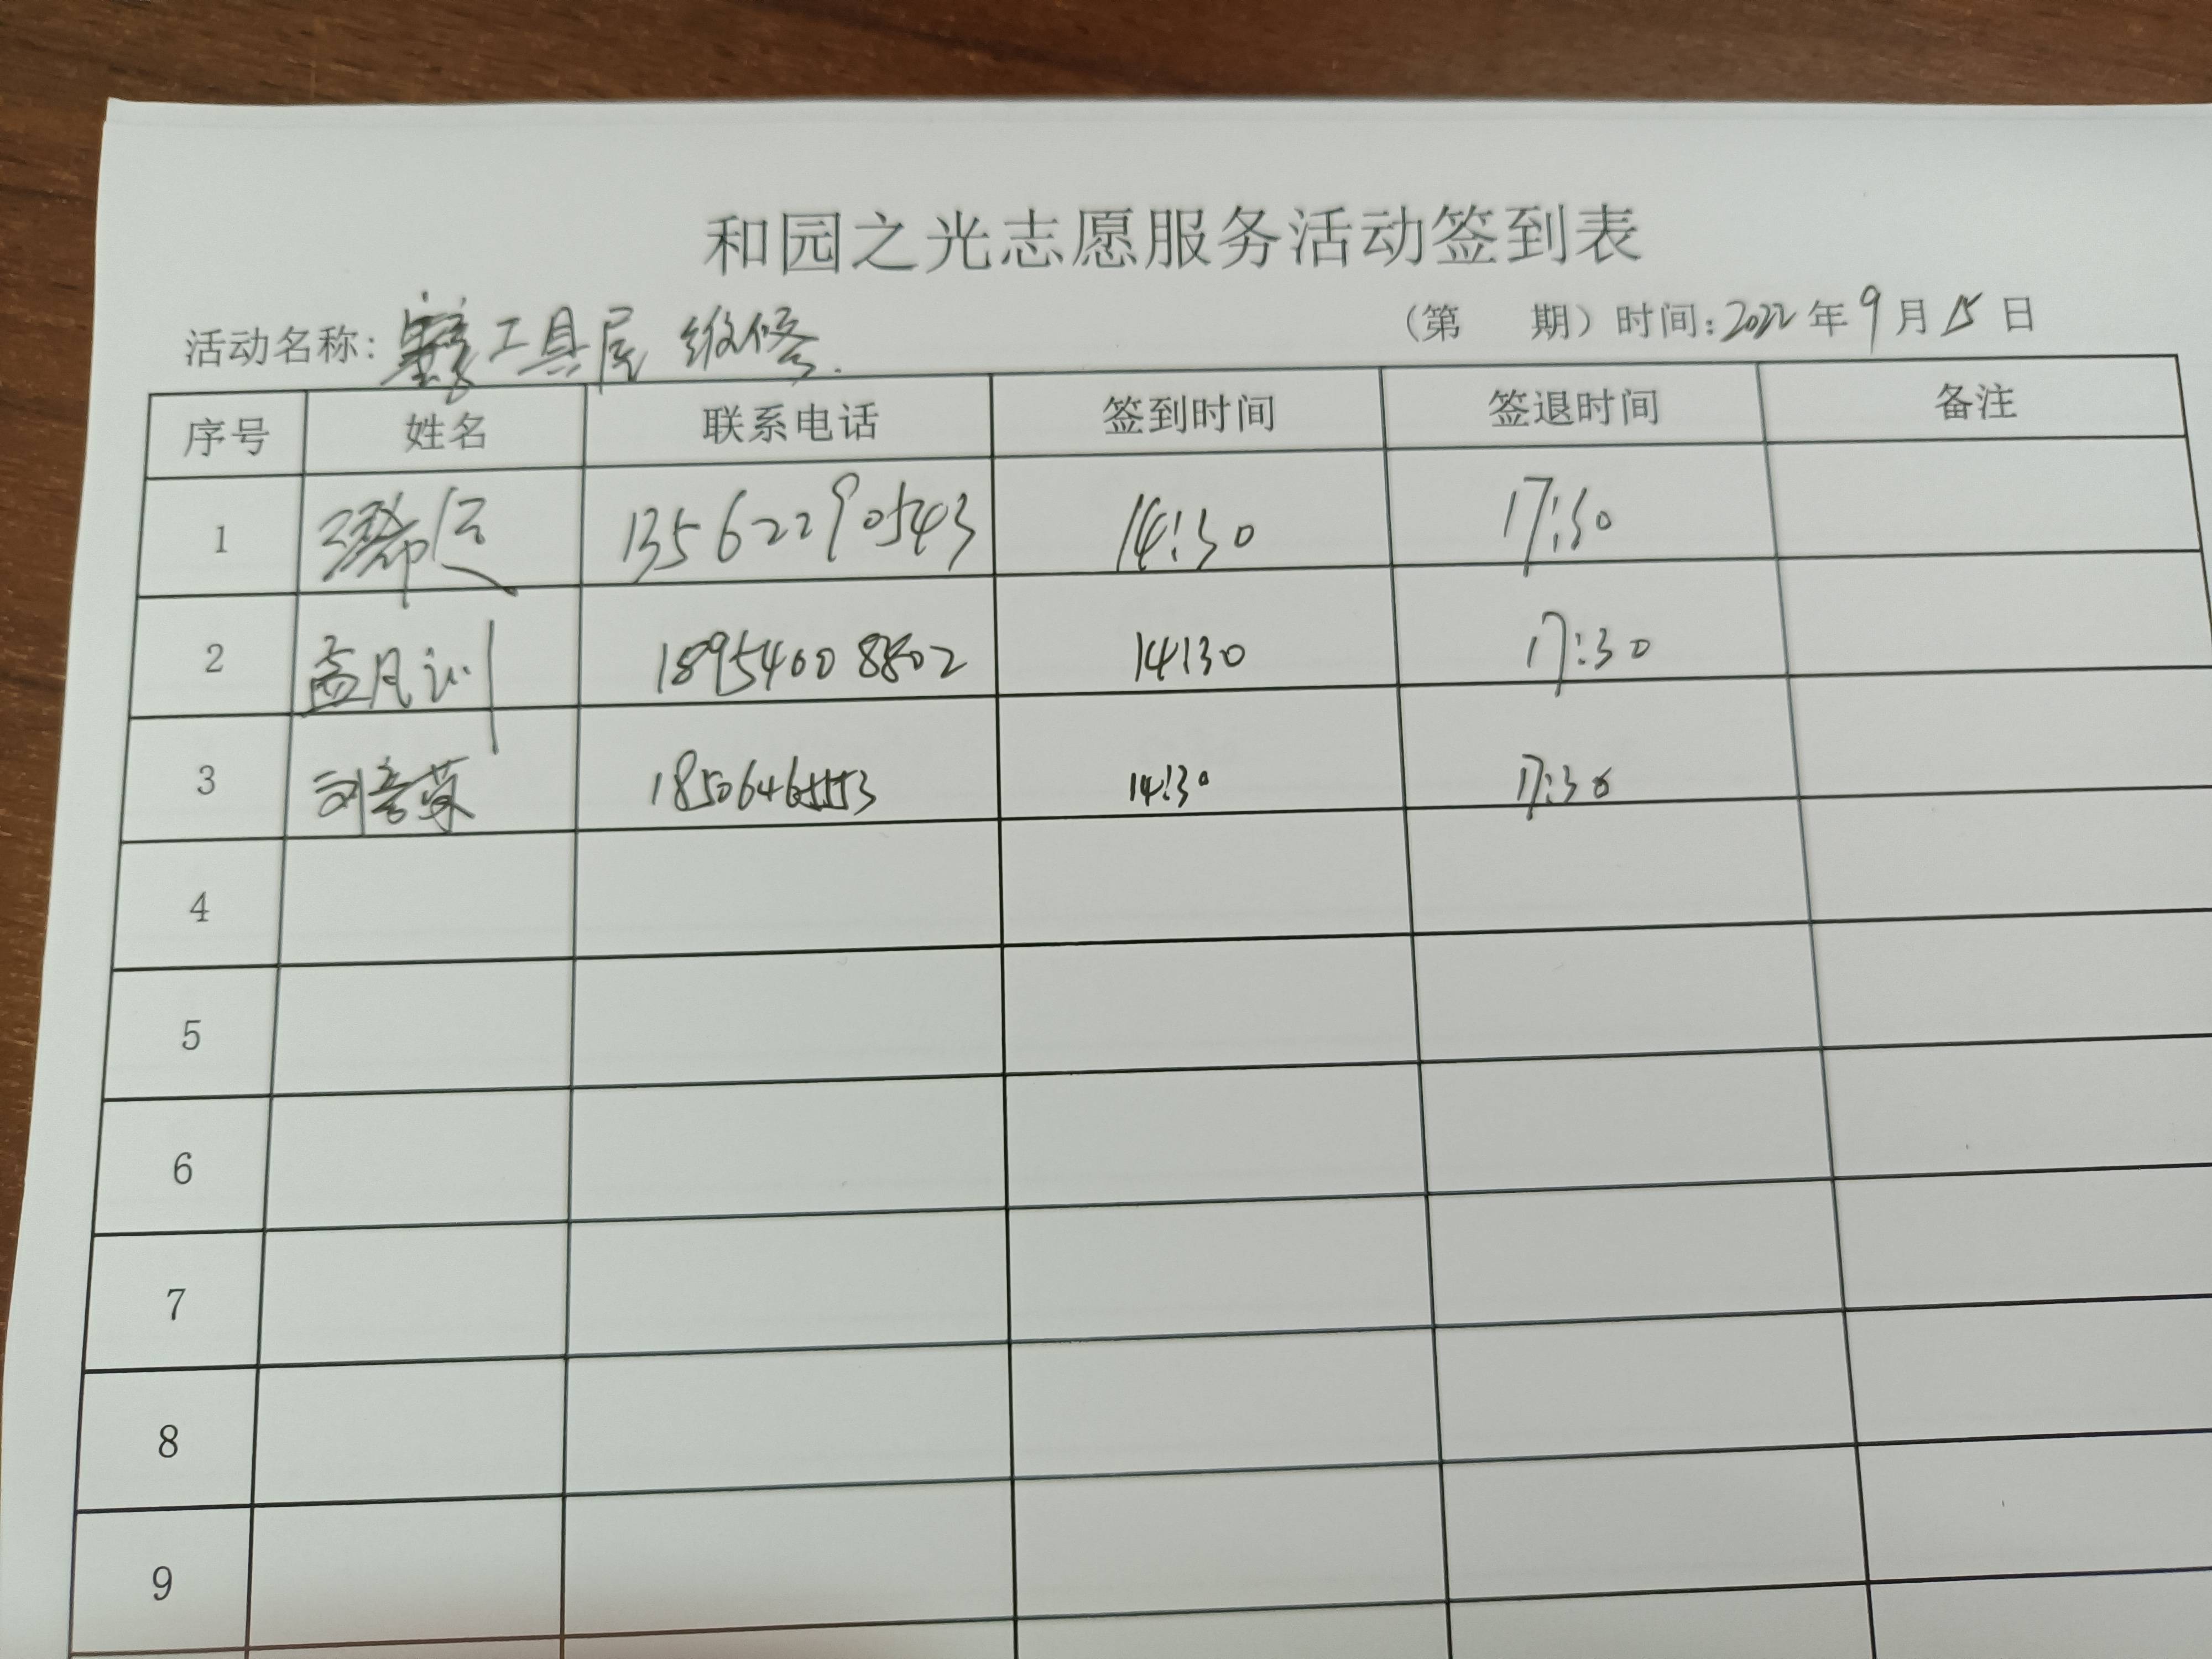 和园之光志愿服务活动签到表
活动名称: 工具屋 维修. (第 期) 时间: 2022 年 9 月 15 日
序号 姓名 联系电话 签到时间 签退时间 备注
1 13562290543 14:30 17:30
2 孟凡训 18954008802 14:30 17:30
3 14:30 17:30
4
5
6
7
8
9